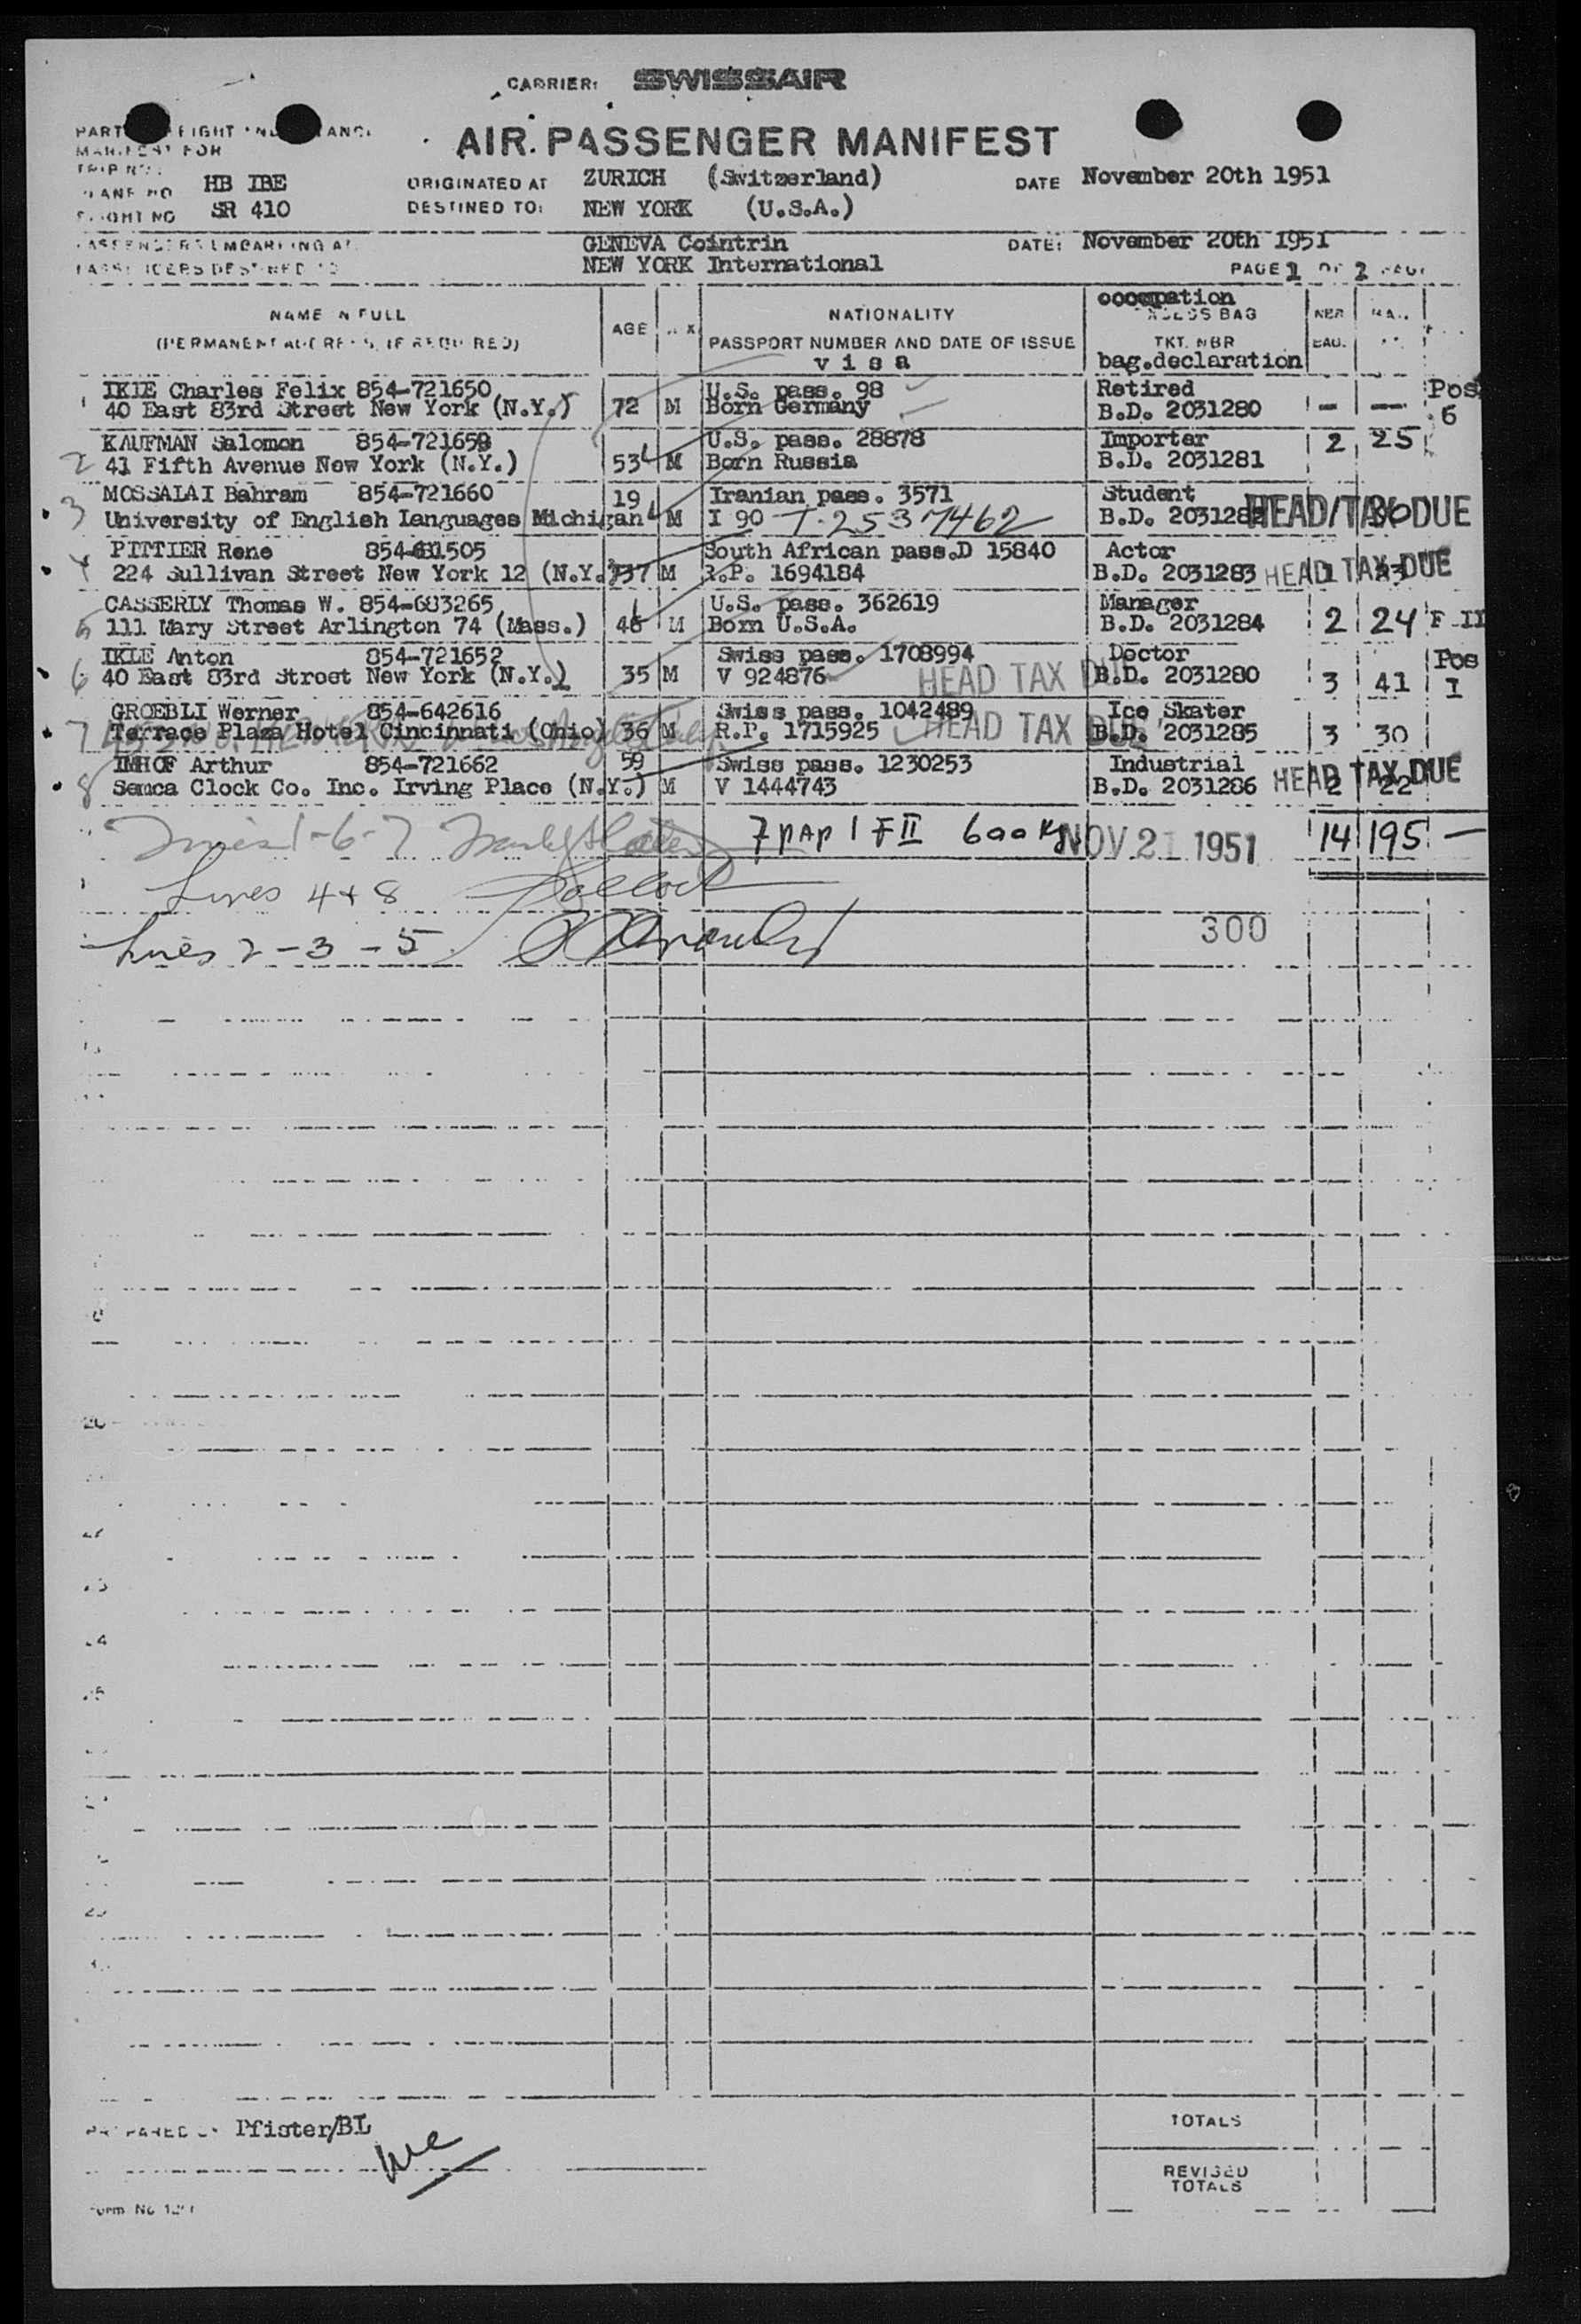 CARRIER: SWISSAIR
AIR PASSENGER MANIFEST
MANIFEST FOR
HB IBE ORIGINATED AT ZURICH (Switzerland) DATE November 20th 1951
SR 410 DESTINED TO: NEW YORK (U.S.A.)
GENEVA Cointrin DATE: November 20th 1951
NEW YORK International
PAGE 1 OF 2
occupation
NAME IN FULL AGE NATIONALITY EXCESS BAG
(PERMANENT ADDRESS, IF REQUIRED) PASSPORT NUMBER AND DATE OF ISSUE TKT. NBR
visa bag.declaration
IKLE Charles Felix 854-721650 U.S. pass. 98 Retired Pos
1 40 East 83rd Street New York (N.Y.) 72 M Born Germany B.D. 2031280 - - 6
KAUFMAN Salomon 854-721659 U.S. pass. 28878 Importer 2 25
2 41 Fifth Avenue New York (N.Y.) 53 M Born Russia B.D. 2031281
MOSSALAI Bahram 854-721660 19 Iranian pass. 3571 Student
3 University of English Languages Michigan M I 90 T-2537462 B.D. 2031282 HEAD TAX DUE
PITTIER Rene South African pass.D 15840 Actor
4 224 Sullivan Street New York 12 (N.Y.) 37 M R.P. 1694184 B.D. 2031283 HEAD TAX DUE
CASSERLY Thomas W. 854-683265 U.S. pass. 362619 Manager
5 111 Mary Street Arlington 74 (Mass.) M Born U.S.A. B.D. 2031284 2 24 F II
IKLE Anton 854-721652 Swiss pass. 1708994 Doctor Pos
6 40 East 83rd Street New York (N.Y.) 35 M V 924876 HEAD TAX DUE B.D. 2031280 3 41 I
GROEBLI Werner 854-642616 Swiss pass. 1042489 Ice Skater
7 Terrace Plaza Hotel Cincinnati (Ohio) 36 M R.P. 1715925 HEAD TAX DUE B.D. 2031285 3 30
IMHOF Arthur 854-721662 59 Swiss pass. 1230253 Industrial
8 Semca Clock Co. Inc. Irving Place (N.Y.) M V 1444743 B.D. 2031286 HEAD TAX DUE 2 22
1-6-7 7 pap 1 F II 600 Kg NOV 21 1951 14 195 -
Lines 4 + 8
Lines 2-3-5 300
PREPARED BY Pfister/BL
TOTALS
REVISED
TOTALS
Form No